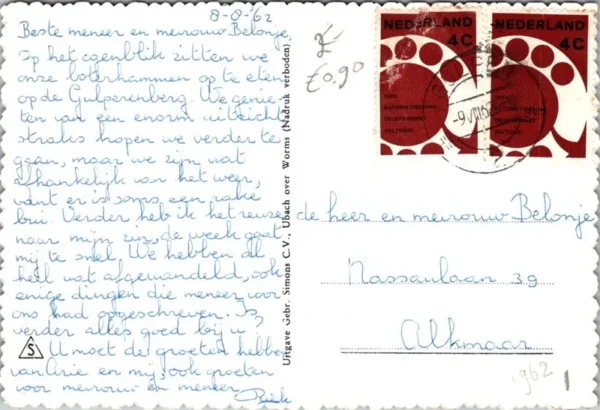 8-8-'62
Beste meneer en mevrouw Belonje,
Op het ogenblik zitten we
onze boterhammen op te eten
op de Gulperberg. We genie-
ten van een enorm uitzicht
straks hopen we verder te
gaan, maar we zijn wat
afhankelijk van het weer,
want er is soms een
bui. Verder heb ik het reuze
naar mijn zin, de week gaat
mij te snel. We hebben al
heel wat afgewandeld, ook
enige dingen die meneer voor
ons had opgeschreven. Is
verder alles goed bij u
U moet de groeten hebben
van Arie en mij, ook groeten
voor mevrouw en meneer
S
Uitgave Gebr. Simons C.V., Ubach over Worms (Nadruk verboden)
£0,90
NEDERLAND
4C
1962
AUTOMATISERING
TELEFOONNET
VOLTOOID
NEDERLAND
4C
AUTOMATISERING
TELEFOONNET
VOLTOOID
de heer en mevrouw Belonje
Nassaulaan 39
Alkmaar
1962
1